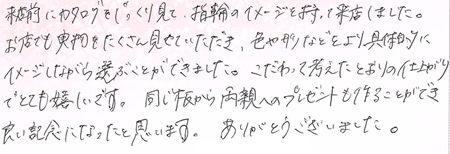 来店前にカタログをじっくり見て、指輪のイメージを持って来店しました。
お店でも実物をたくさん見せていただき、色やかりなどをより具体的に
イメージしながら選ぶことができました。こだわって考えたとおりの仕上がり
でとても嬉しいです。同じ板から両親へのプレゼントも作ることができ
良い記念になったと思います。ありがとうございました。